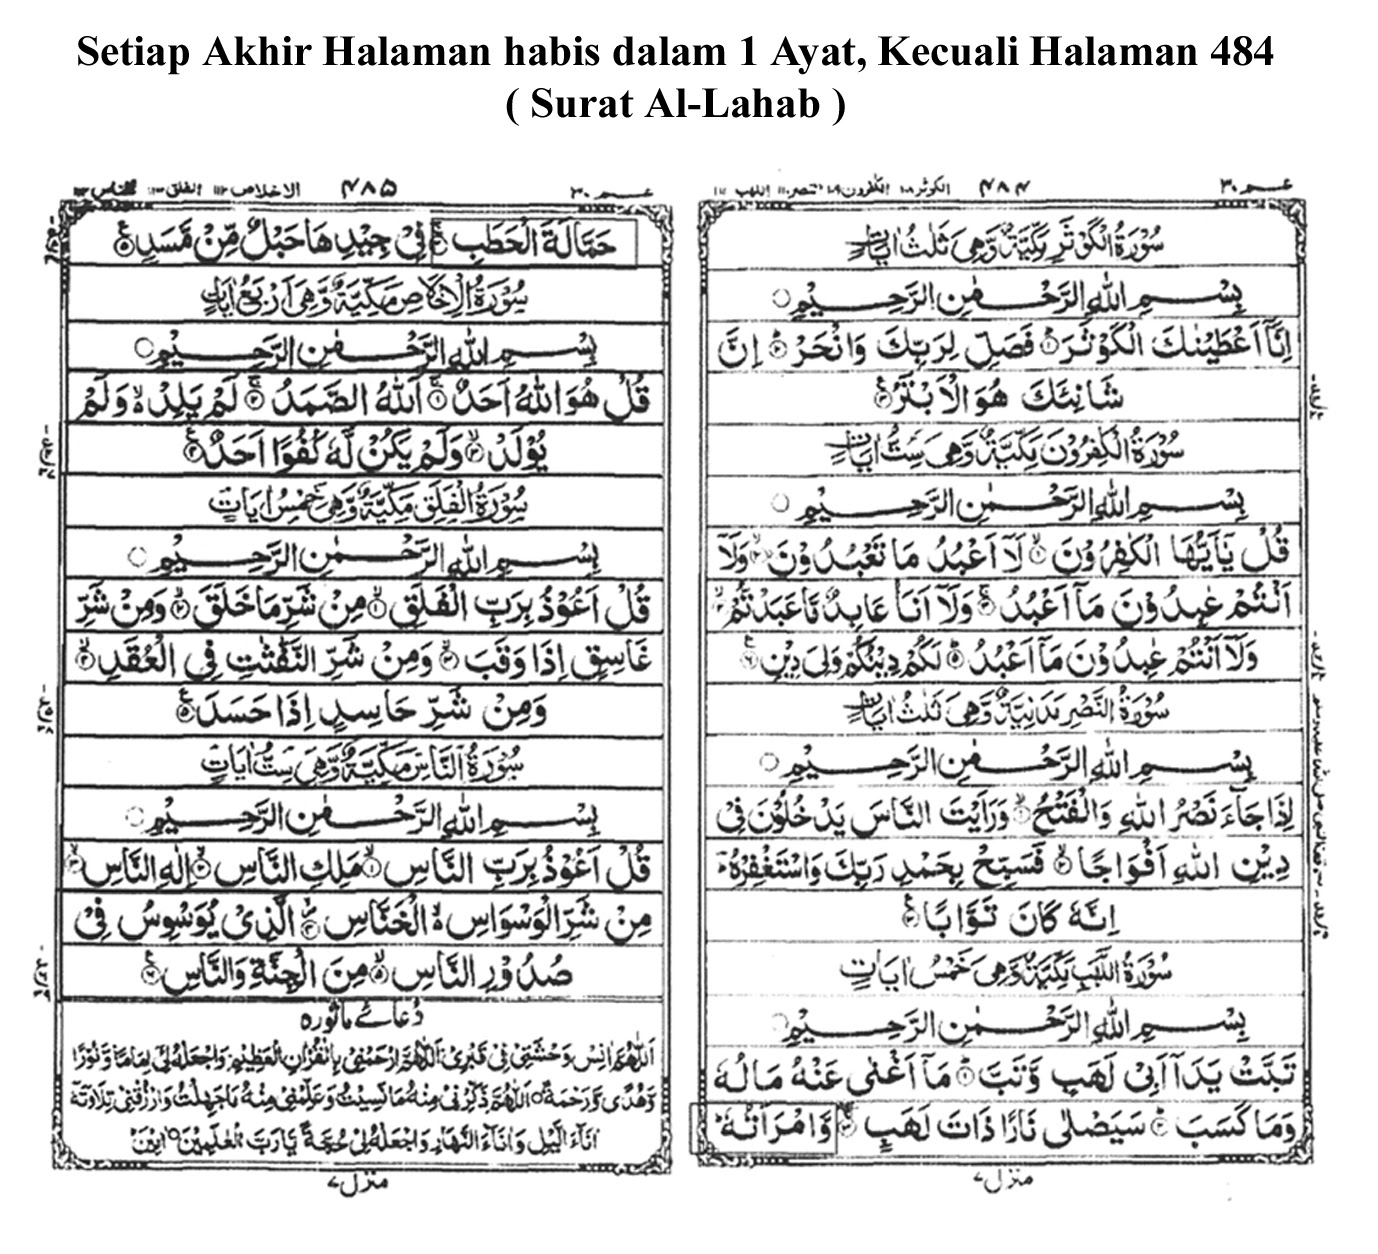 Setiap Akhir Halaman habis dalam 1 Ayat, Kecuali Halaman 484
( Surat Al-Lahab )
عـم ٣٠
٤٨٤
الكوثر ١٠٨ الكٰفرون ١٠٩ النصر ١١٠ اللهب ١١١
سُوْرَةُ الْكَوْثَرِ مَكِّيَّةٌ وَّهِىَ ثَلٰثُ اٰيَاتٍ
بِسْمِ اللهِ الرَّحْمٰنِ الرَّحِيْمِ
اِنَّآ اَعْطَيْنٰكَ الْكَوْثَرَ ۝١ فَصَلِّ لِرَبِّكَ وَانْحَرْ ۝٢ اِنَّ
شَانِئَكَ هُوَ الْاَبْتَرُ ۝٣
سُوْرَةُ الْكٰفِرُوْنَ مَكِّيَّةٌ وَّهِىَ سِتُّ اٰيَاتٍ
بِسْمِ اللهِ الرَّحْمٰنِ الرَّحِيْمِ
قُلْ يٰٓاَيُّهَا الْكٰفِرُوْنَ ۝١ لَآ اَعْبُدُ مَا تَعْبُدُوْنَ ۝٢ وَلَآ
اَنْتُمْ عٰبِدُوْنَ مَآ اَعْبُدُ ۝٣ وَلَآ اَنَا عَابِدٌ مَّا عَبَدْتُّمْ ۝٤
وَلَآ اَنْتُمْ عٰبِدُوْنَ مَآ اَعْبُدُ ۝٥ لَكُمْ دِيْنُكُمْ وَلِىَ دِيْنِ ۝٦
سُوْرَةُ النَّصْرِ مَدَنِيَّةٌ وَّهِىَ ثَلٰثُ اٰيَاتٍ
بِسْمِ اللهِ الرَّحْمٰنِ الرَّحِيْمِ
اِذَا جَآءَ نَصْرُ اللهِ وَالْفَتْحُ ۝١ وَرَاَيْتَ النَّاسَ يَدْخُلُوْنَ فِىْ
دِيْنِ اللهِ اَفْوَاجًا ۝٢ فَسَبِّحْ بِحَمْدِ رَبِّكَ وَاسْتَغْفِرْهُ
اِنَّهٗ كَانَ تَوَّابًا ۝٣
سُوْرَةُ اللَّهَبِ مَكِّيَّةٌ وَّهِىَ خَمْسُ اٰيَاتٍ
بِسْمِ اللهِ الرَّحْمٰنِ الرَّحِيْمِ
تَبَّتْ يَدَآ اَبِىْ لَهَبٍ وَّتَبَّ ۝١ مَآ اَغْنٰى عَنْهُ مَالُهٗ
وَمَا كَسَبَ ۝٢ سَيَصْلٰى نَارًا ذَاتَ لَهَبٍ ۝٣ وَّامْرَاَتُهٗ
منزل ٧
عـم ٣٠
٤٨٥
الاخلاص ١١٢ الفلق ١١٣ الناس ١١٤
حَمَّالَةَ الْحَطَبِ ۝٤ فِىْ جِيْدِهَا حَبْلٌ مِّنْ مَّسَدٍ ۝٥
سُوْرَةُ الْاِخْلَاصِ مَكِّيَّةٌ وَّهِىَ اَرْبَعُ اٰيَاتٍ
بِسْمِ اللهِ الرَّحْمٰنِ الرَّحِيْمِ
قُلْ هُوَ اللهُ اَحَدٌ ۝١ اَللهُ الصَّمَدُ ۝٢ لَمْ يَلِدْ وَلَمْ
يُوْلَدْ ۝٣ وَلَمْ يَكُنْ لَّهٗ كُفُوًا اَحَدٌ ۝٤
سُوْرَةُ الْفَلَقِ مَكِّيَّةٌ وَّهِىَ خَمْسُ اٰيَاتٍ
بِسْمِ اللهِ الرَّحْمٰنِ الرَّحِيْمِ
قُلْ اَعُوْذُ بِرَبِّ الْفَلَقِ ۝١ مِنْ شَرِّ مَا خَلَقَ ۝٢ وَمِنْ شَرِّ
غَاسِقٍ اِذَا وَقَبَ ۝٣ وَمِنْ شَرِّ النَّفّٰثٰتِ فِى الْعُقَدِ ۝٤
وَمِنْ شَرِّ حَاسِدٍ اِذَا حَسَدَ ۝٥
سُوْرَةُ النَّاسِ مَكِّيَّةٌ وَّهِىَ سِتُّ اٰيَاتٍ
بِسْمِ اللهِ الرَّحْمٰنِ الرَّحِيْمِ
قُلْ اَعُوْذُ بِرَبِّ النَّاسِ ۝١ مَلِكِ النَّاسِ ۝٢ اِلٰهِ النَّاسِ ۝٣
مِنْ شَرِّ الْوَسْوَاسِ الْخَنَّاسِ ۝٤ الَّذِىْ يُوَسْوِسُ فِىْ
صُدُوْرِ النَّاسِ ۝٥ مِنَ الْجِنَّةِ وَالنَّاسِ ۝٦
دُعائے ماثوره
اَللّٰهُمَّ اٰنِسْ وَحْشَتِىْ فِىْ قَبْرِىْ اَللّٰهُمَّ ارْحَمْنِىْ بِالْقُرْاٰنِ الْعَظِيْمِ وَاجْعَلْهُ لِىْ اِمَامًا وَّنُوْرًا
وَّهُدًى وَّرَحْمَةً اَللّٰهُمَّ ذَكِّرْنِىْ مِنْهُ مَا نَسِيْتُ وَعَلِّمْنِىْ مِنْهُ مَا جَهِلْتُ وَارْزُقْنِىْ تِلَاوَتَهٗ
اٰنَآءَ الَّيْلِ وَاٰنَآءَ النَّهَارِ وَاجْعَلْهُ لِىْ حُجَّةً يَّا رَبَّ الْعٰلَمِيْنَ اٰمِيْنَ
منزل ٧